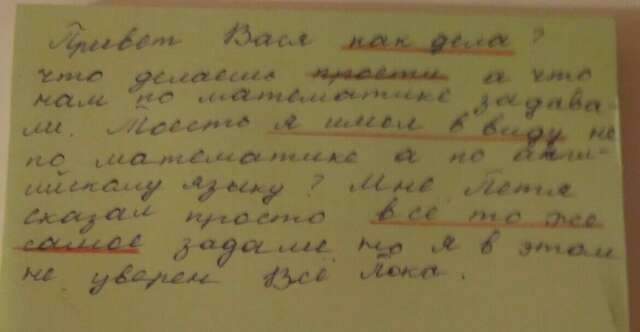 Привет Вася как дела?
что делаешь прости а что
нам по математике задава-
ли. Тоесть я имел в виду не
по математике а по англ-
ийскому языку? Мне Петя
сказал просто всё то же
самое задали но я в этом
не уверен Всё Пока.